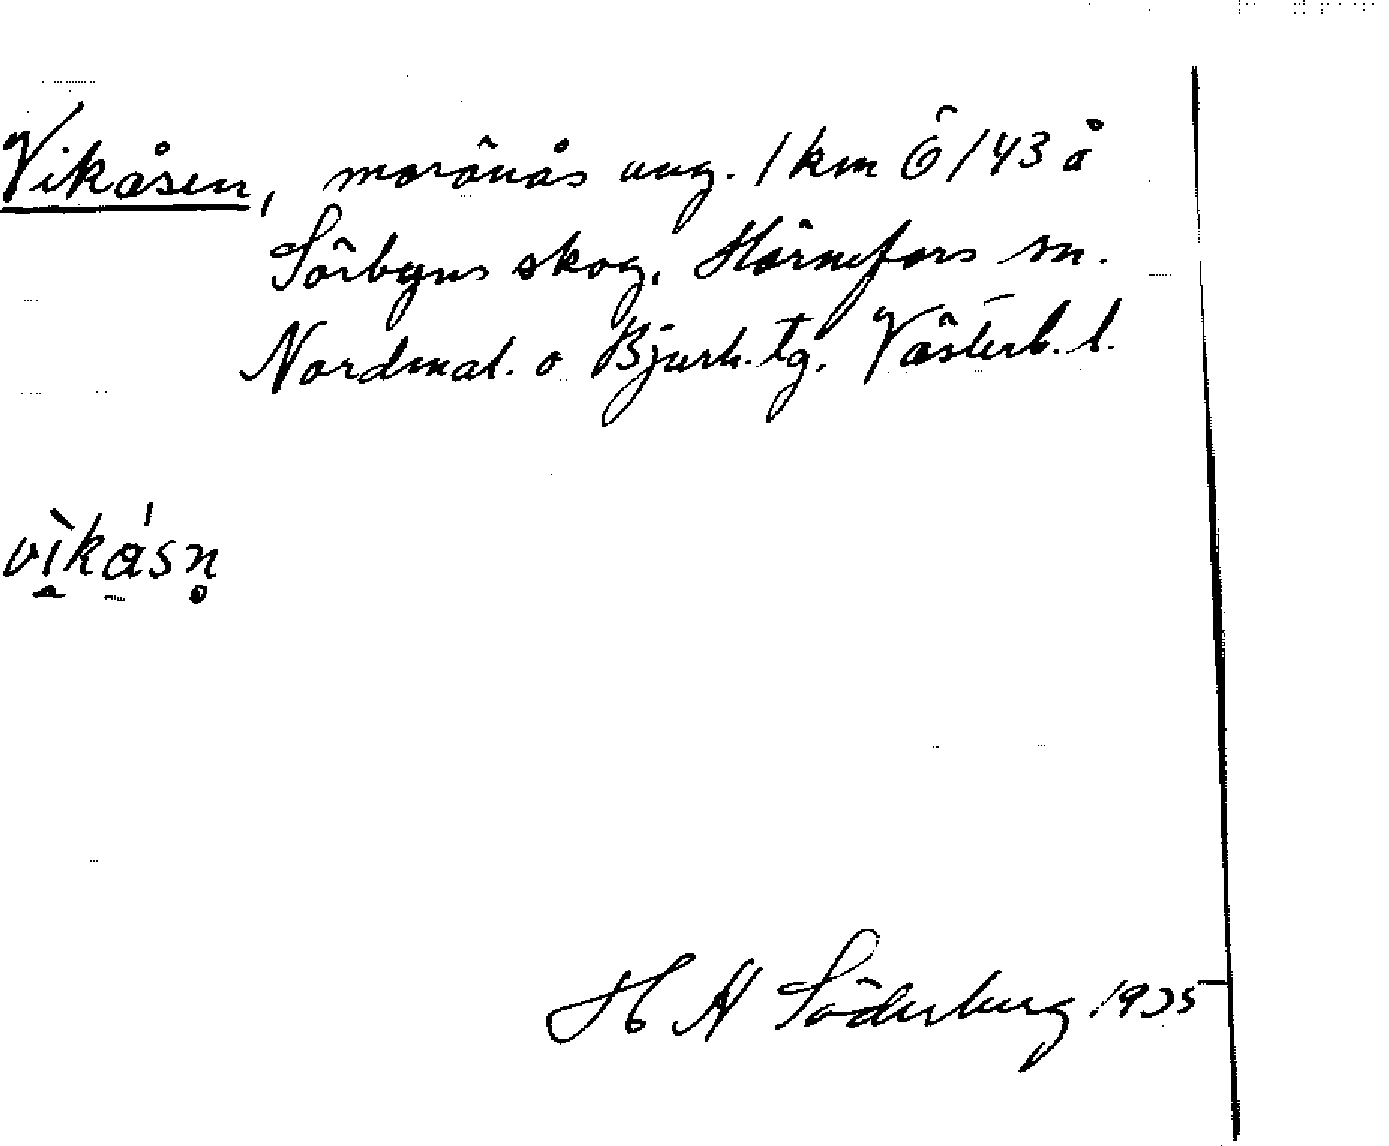 Vikåsen, moränås ung. 1 km Ö/143 å
Sörbyns skog. Hörnefors sn.
Nordmal. o Bjurh. tg. Västerb. l.
vìkåsn̥
H N Söderberg 1935